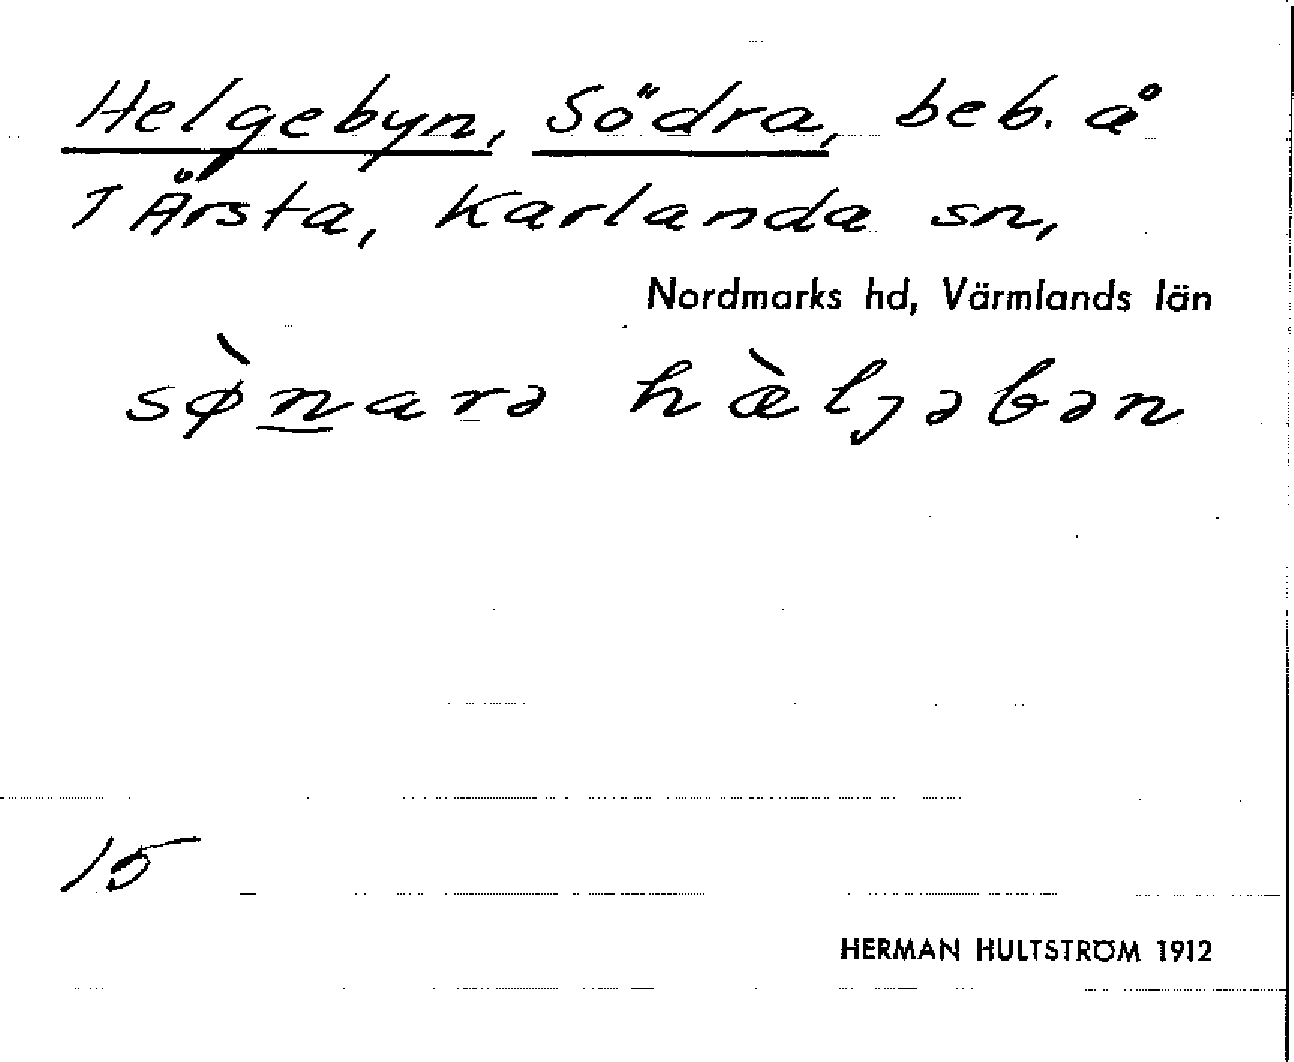 Helgebyn, Södra, beb. å
1 Årsta, Karlanda sn,
Nordmarks hd, Värmlands län
sø̀narə hæ̀ljəbən
15
HERMAN HULTSTRÖM 1912